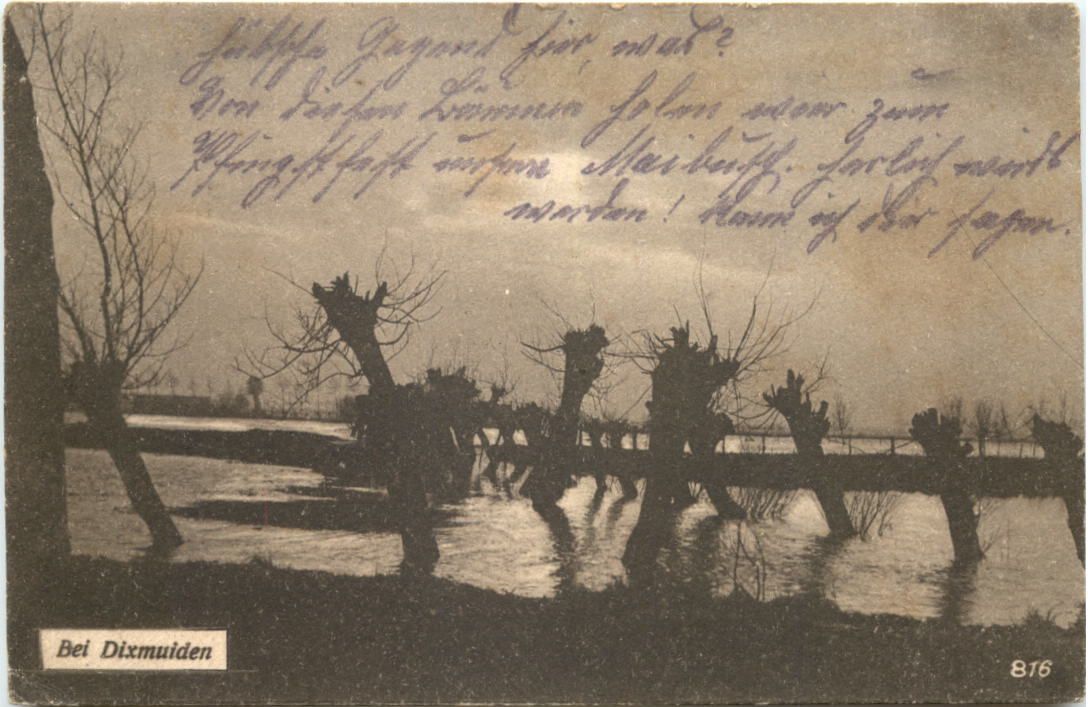 hübsche Gegend hier, was?
Von diesen Bäumen holen wir zum
Pfingstfest unsern Maibusch. Herlich wirds
werden! Kann ich Dir sagen.
Bei Dixmuiden
816